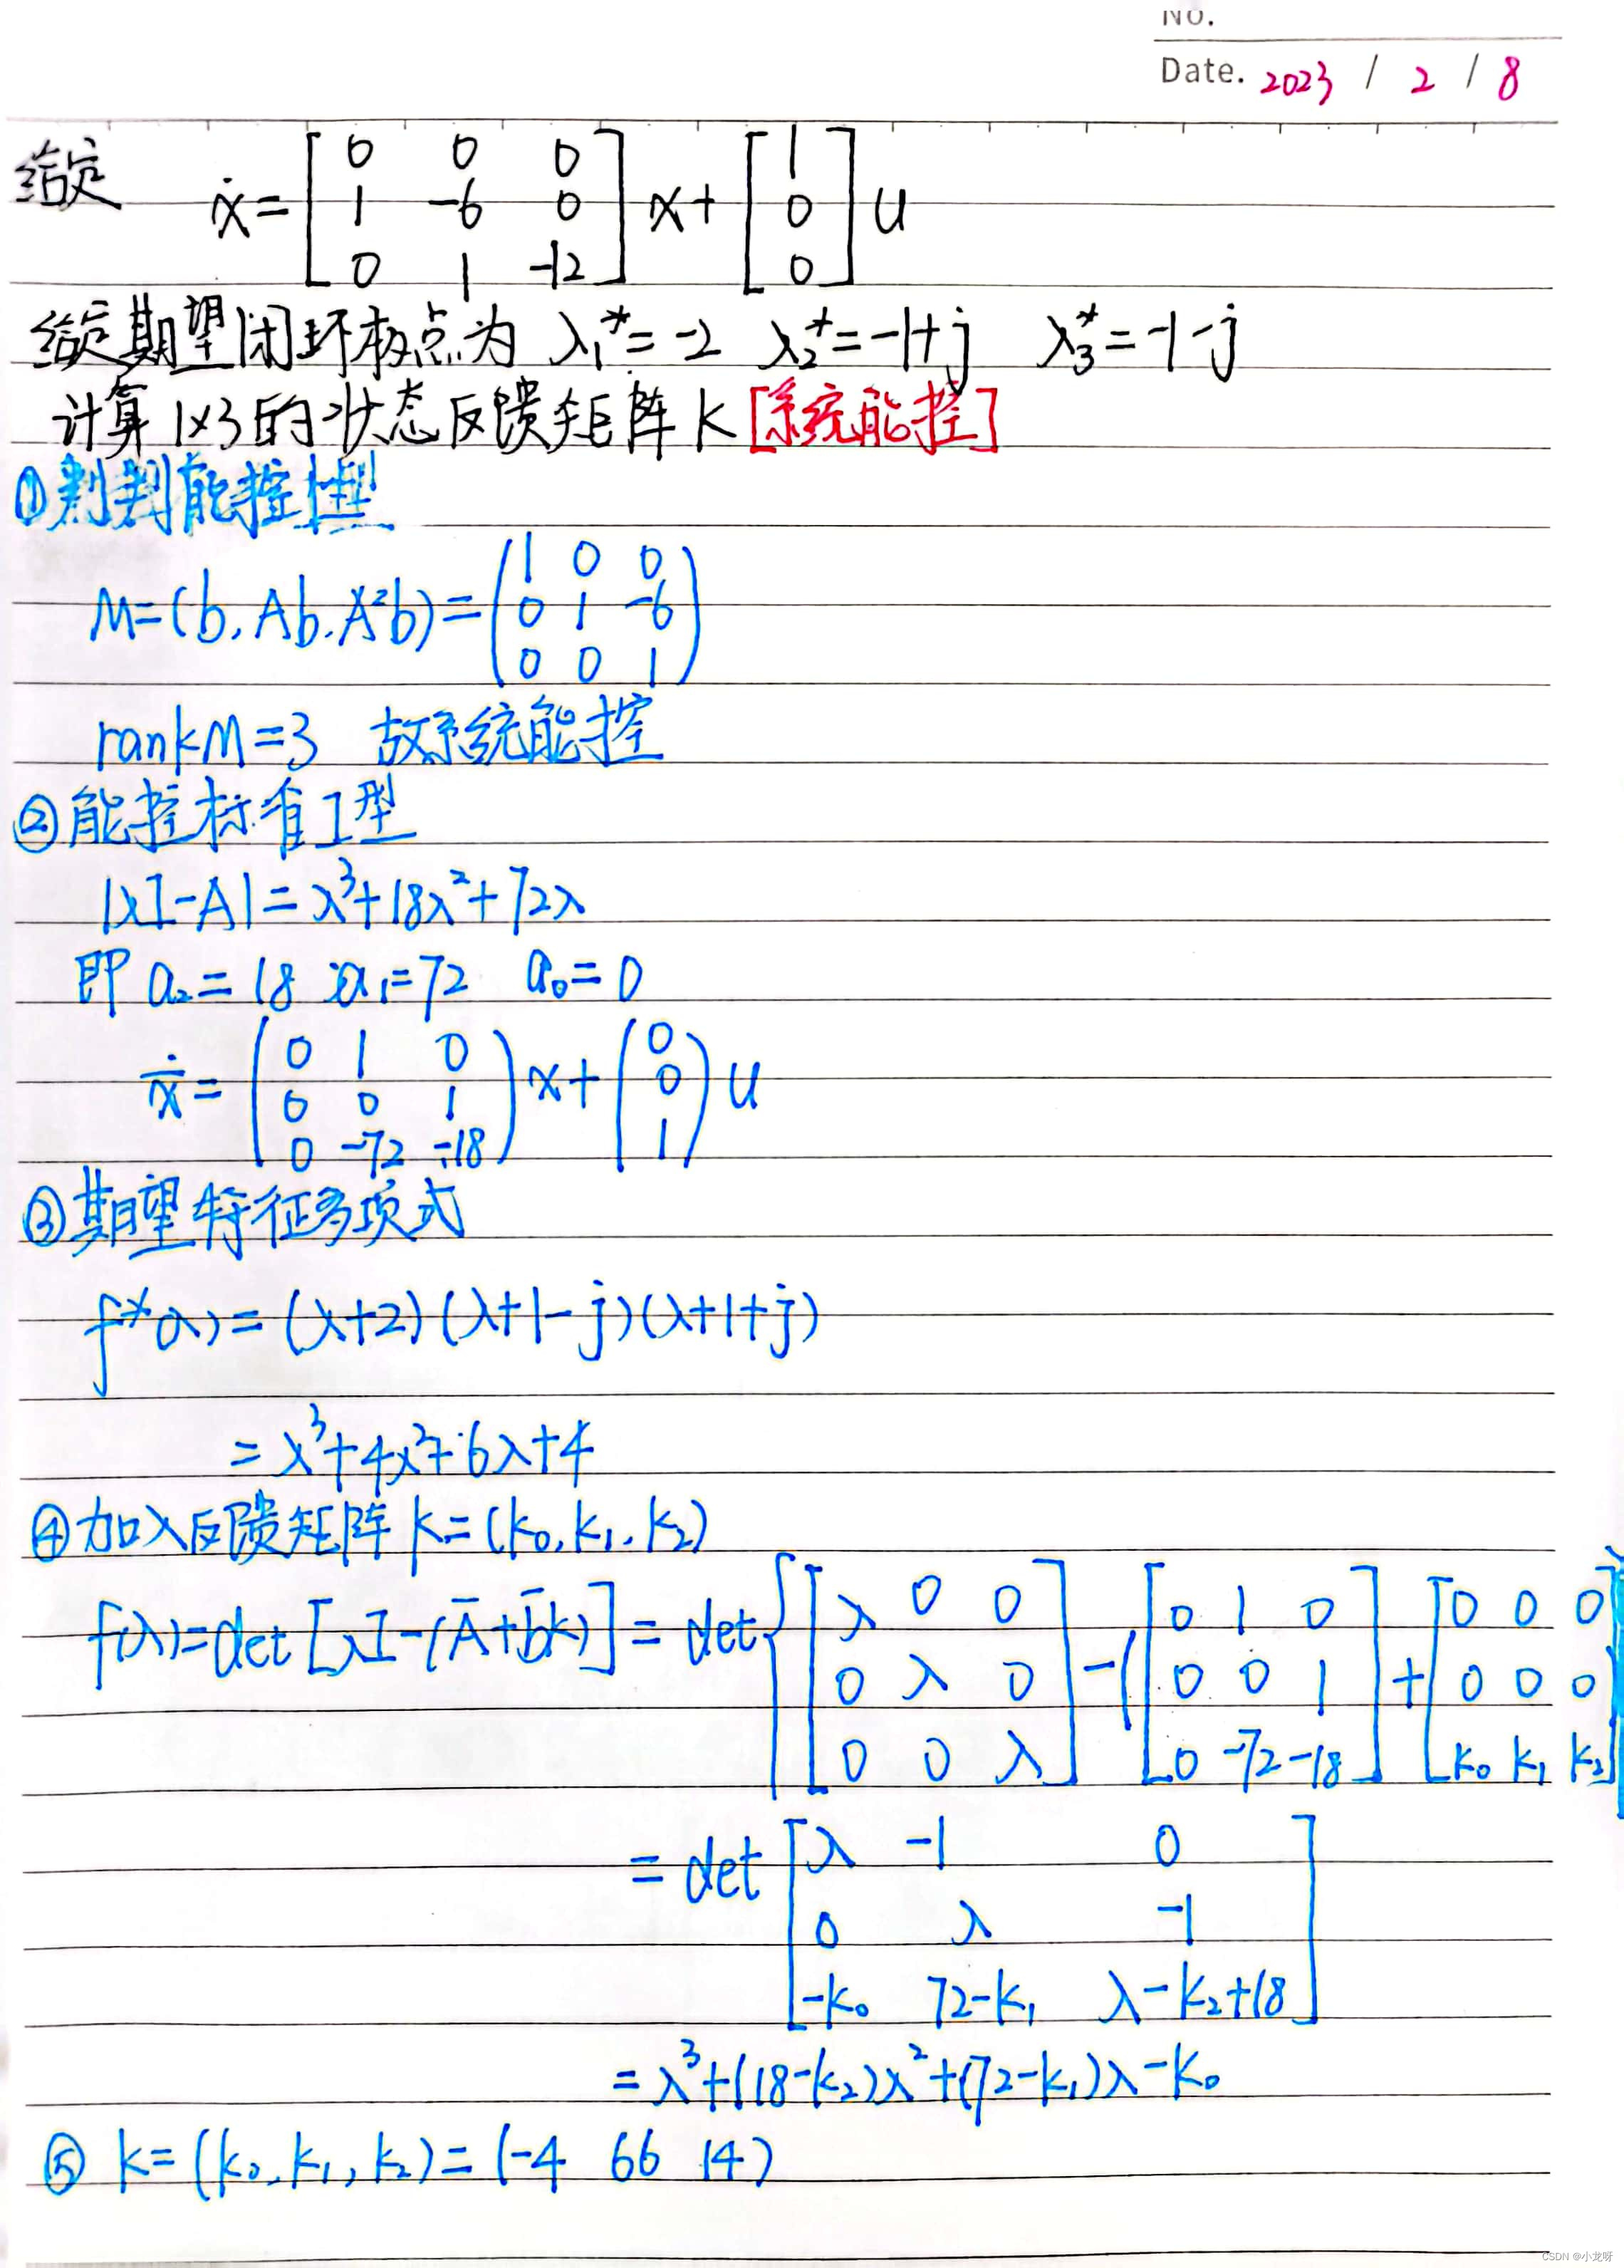 NO.
Date. 2023 / 2 / 8
给定 ẋ = [0 0 0; 1 -6 0; 0 1 -12] x + [1; 0; 0] u
给定期望闭环极点为 λ₁* = -2 λ₂* = -1+j λ₃* = -1-j
计算1×3的状态反馈矩阵K [系统能控]
①判判能控性型
M=(b, Ab, A²b) = (1 0 0; 0 1 -6; 0 0 1)
rankM=3 故系统能控
②能控标准I型
|λI-A| = λ³+18λ²+72λ
即 a₂=18 a₁=72 a₀=0
x̄̇ = (0 1 0; 0 0 1; 0 -72 -18) x + (0; 0; 1) u
③期望特征多项式
f*(λ) = (λ+2)(λ+1-j)(λ+1+j)
= λ³+4λ²+6λ+4
④加入反馈矩阵 k=(k₀, k₁, k₂)
f(λ)=det[λI-(Ā+b̄k)] = det{[λ 0 0; 0 λ 0; 0 0 λ] - ([0 1 0; 0 0 1; 0 -72 -18] + [0 0 0; 0 0 0; k₀ k₁ k₂]
= det [λ -1 0; 0 λ -1; -k₀ 72-k₁ λ-k₂+18]
= λ³+(18-k₂)λ²+(72-k₁)λ-k₀
⑤ k=(k₀, k₁, k₂)=(-4 66 14)
CSDN @小龙呀